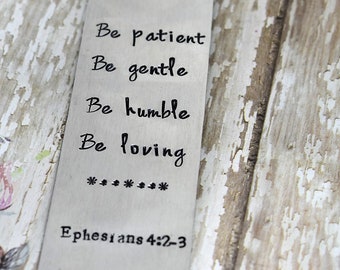 Be patient
Be gentle
Be humble
Be loving
*******
Ephesians 4:2-3